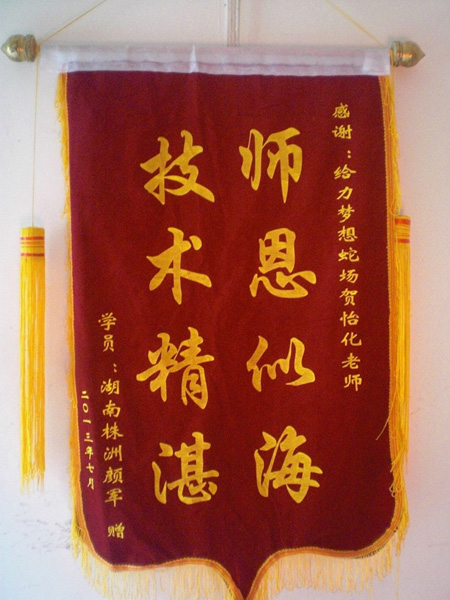 感谢：给力梦想蛇场贺怡化老师
师恩似海
技术精湛
学员：湖南株洲颜军 赠
二〇一三年七月